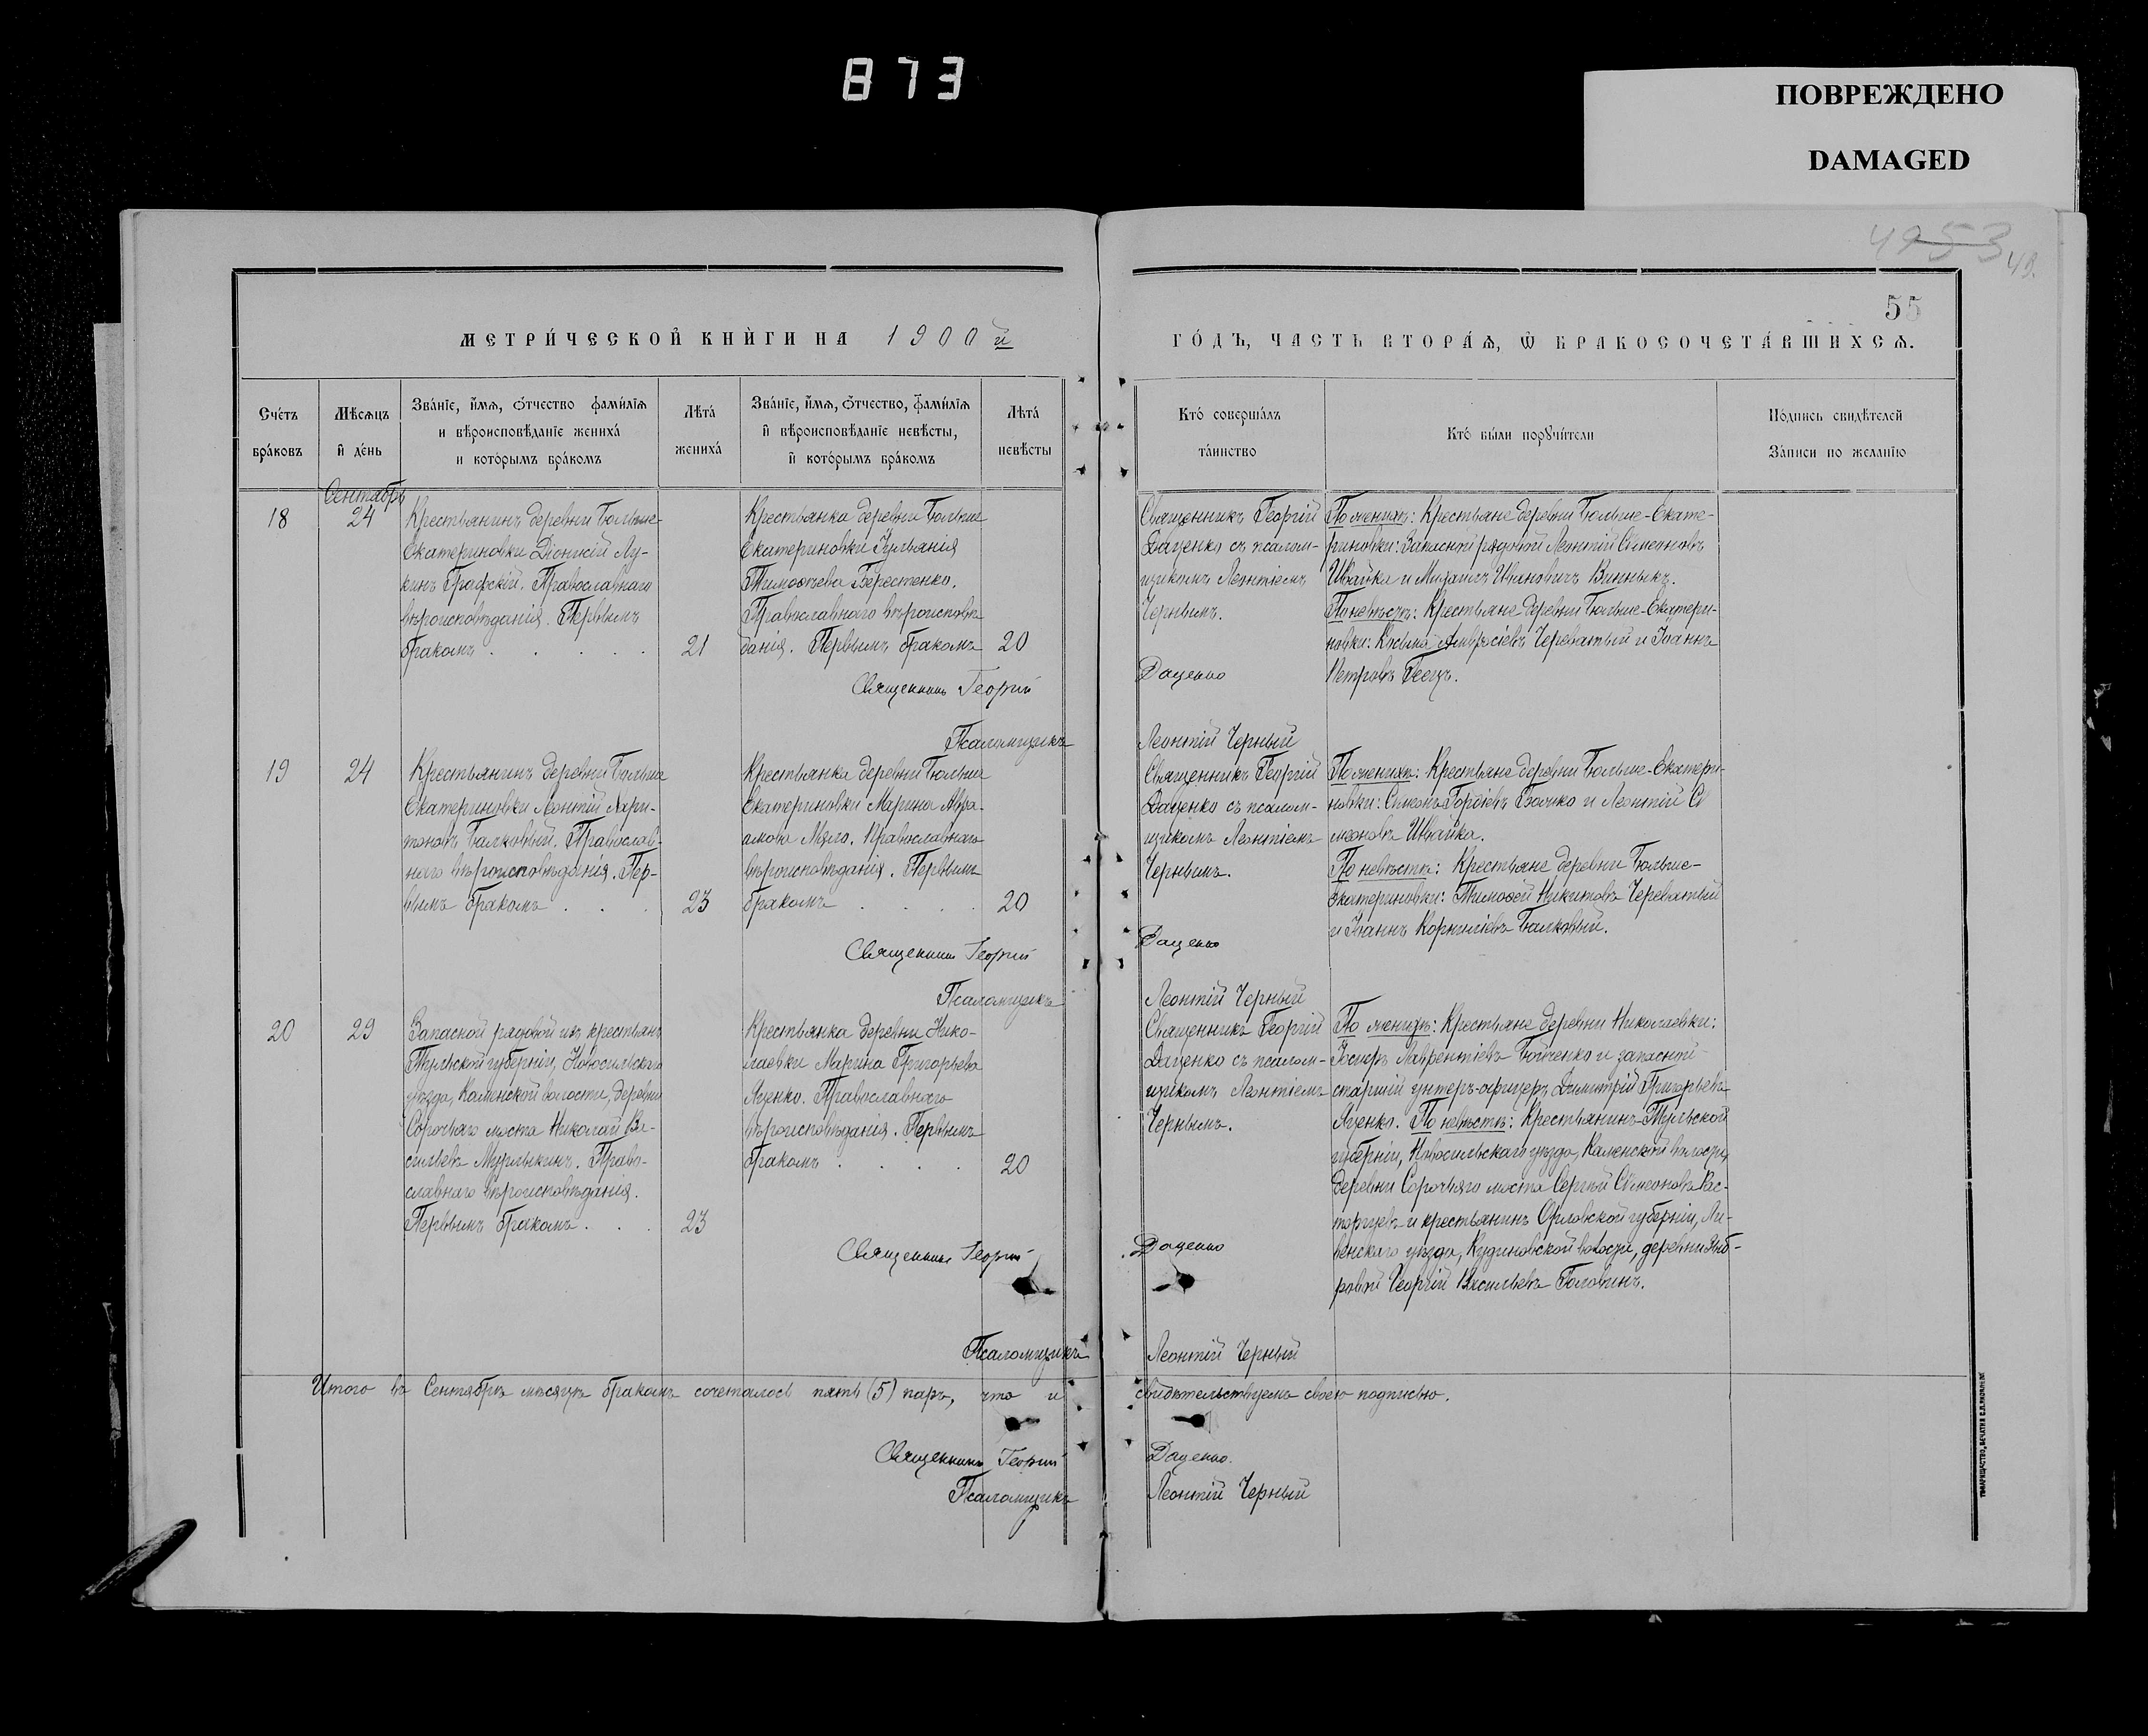 873
ПОВРЕЖДЕНО
DAMAGED
4953
43.
55
МЕТРИ́ЧЕСКОЙ КНИ́ГИ НА 1900й
ГО́ДЪ, ЧАСТЬ ВТОРА́Ѧ, Ѡ БРАКОСОЧЕТА́ВШИХСѦ.
Сче́тъ бра́ковъ
Мѣ́сѧцъ и҆ де́нь
Зва́нїе, и҆́мѧ, ѻ҆́тчество фами́лїѧ
и вѣроисповѣ́данїе жениха́
и кото́рымъ бра́комъ
Лѣта́ жениха́
Зва́нїе, и҆́мѧ, ѻ҆́тчество, фами́лїѧ
и҆ вѣроисповѣ́данїе невѣ́сты,
и҆ кото́рымъ бра́комъ
Лѣта́ невѣ́сты
Кто́ соверша́лъ та́инство
Кто́ бы́ли порꙋчи́тели
По́дпись свидѣ́телей
За́писи по жела́нїю
Сентябрь
18
24
Крестьянинъ деревни Больше-
Екатериновки Діонисій Лу-
кинъ Графскій. Православнаго
вѣроисповѣданія. Первымъ
бракомъ . . . . .
21
Крестьянка деревни Больше
Екатериновки Іуліанія
Тимоѳеева Берестенко.
Православнаго вѣроисповѣ
данія. Первымъ бракомъ
20
Священникъ Георгій
Даценко съ псалом-
щикомъ Леонтіемъ
Чернымъ.
По женихѣ: Крестьяне деревни Больше-Екате-
риновки: Запасной рядовой Леонтій Симеоновъ
Швайка и Михаилъ Ивановичъ Винныкъ.
По невѣстѣ: Крестьяне деревни Больше-Екатери-
новки: Косьма Амвросіевъ Череватый и Іоаннъ
Петровъ
Священникъ Георгій Даценко
Псаломщикъ Леонтій Черный
19
24
Крестьянинъ деревни Больше
Екатериновки Леонтій Хари-
тоновъ Балковый. Православ-
наго вѣроисповѣданія. Пер-
вымъ бракомъ . . .
23
Крестьянка деревни Больше
Екатериновки Марина Авра-
амова Мяло. Православнаго
вѣроисповѣданія. Первымъ
бракомъ . . . .
20
Священникъ Георгій
Даценко съ псалом-
щикомъ Леонтіемъ
Чернымъ.
По женихѣ: Крестьяне деревни Больше-Екатери-
новки: Симеонъ Гордіевъ Бойко и Леонтій Си
меоновъ Швайка.
По невѣстѣ: Крестьяне деревни Больше-
Екатериновки: Тимоѳей Никитовъ Череватый
и Іоаннъ Корниліевъ Балковый.
Священникъ Георгій Даценко
Псаломщикъ Леонтій Черный
20
29
Запасной рядовой изъ крестьянъ
Тульской губерніи, Новосильскаго
уѣзда, Каменской волости, деревни
Сорочьяго моста Николай Ва-
сильевъ Мурлыкинъ. Право-
славнаго вѣроисповѣданія.
Первымъ бракомъ . . .
23
Крестьянка деревни Нико-
лаевки Марина Григорьева
Яценко. Православнаго
вѣроисповѣданія. Первымъ
бракомъ . . . .
20
Священникъ Георгій
Даценко съ псалом-
щикомъ Леонтіемъ
Чернымъ.
По женихѣ: Крестьяне деревни Николаевки:
Іосифъ Лаврентіевъ Бойченко и запасной
старшій унтеръ-офицеръ Димитрій Григорьевъ
Яценко. По невѣстѣ: Крестьянинъ Тульской
губерніи, Новосильскаго уѣзда, Каменской волости,
деревни Сорочьяго моста Сергѣй Симеоновъ Рас-
торгуевъ и крестьянинъ Орловской губерніи, Ли-
венскаго уѣзда, Кудиновской волости, деревни
Георгій Васильевъ Головинъ.
Священникъ Георгій Даценко
Псаломщикъ Леонтій Черный
Итого въ Сентябрѣ мѣсяцѣ бракомъ сочеталось пять (5) паръ, что и свидѣтельствуемъ своею подписью.
Священникъ Георгій Даценко.
Псаломщикъ Леонтій Черный